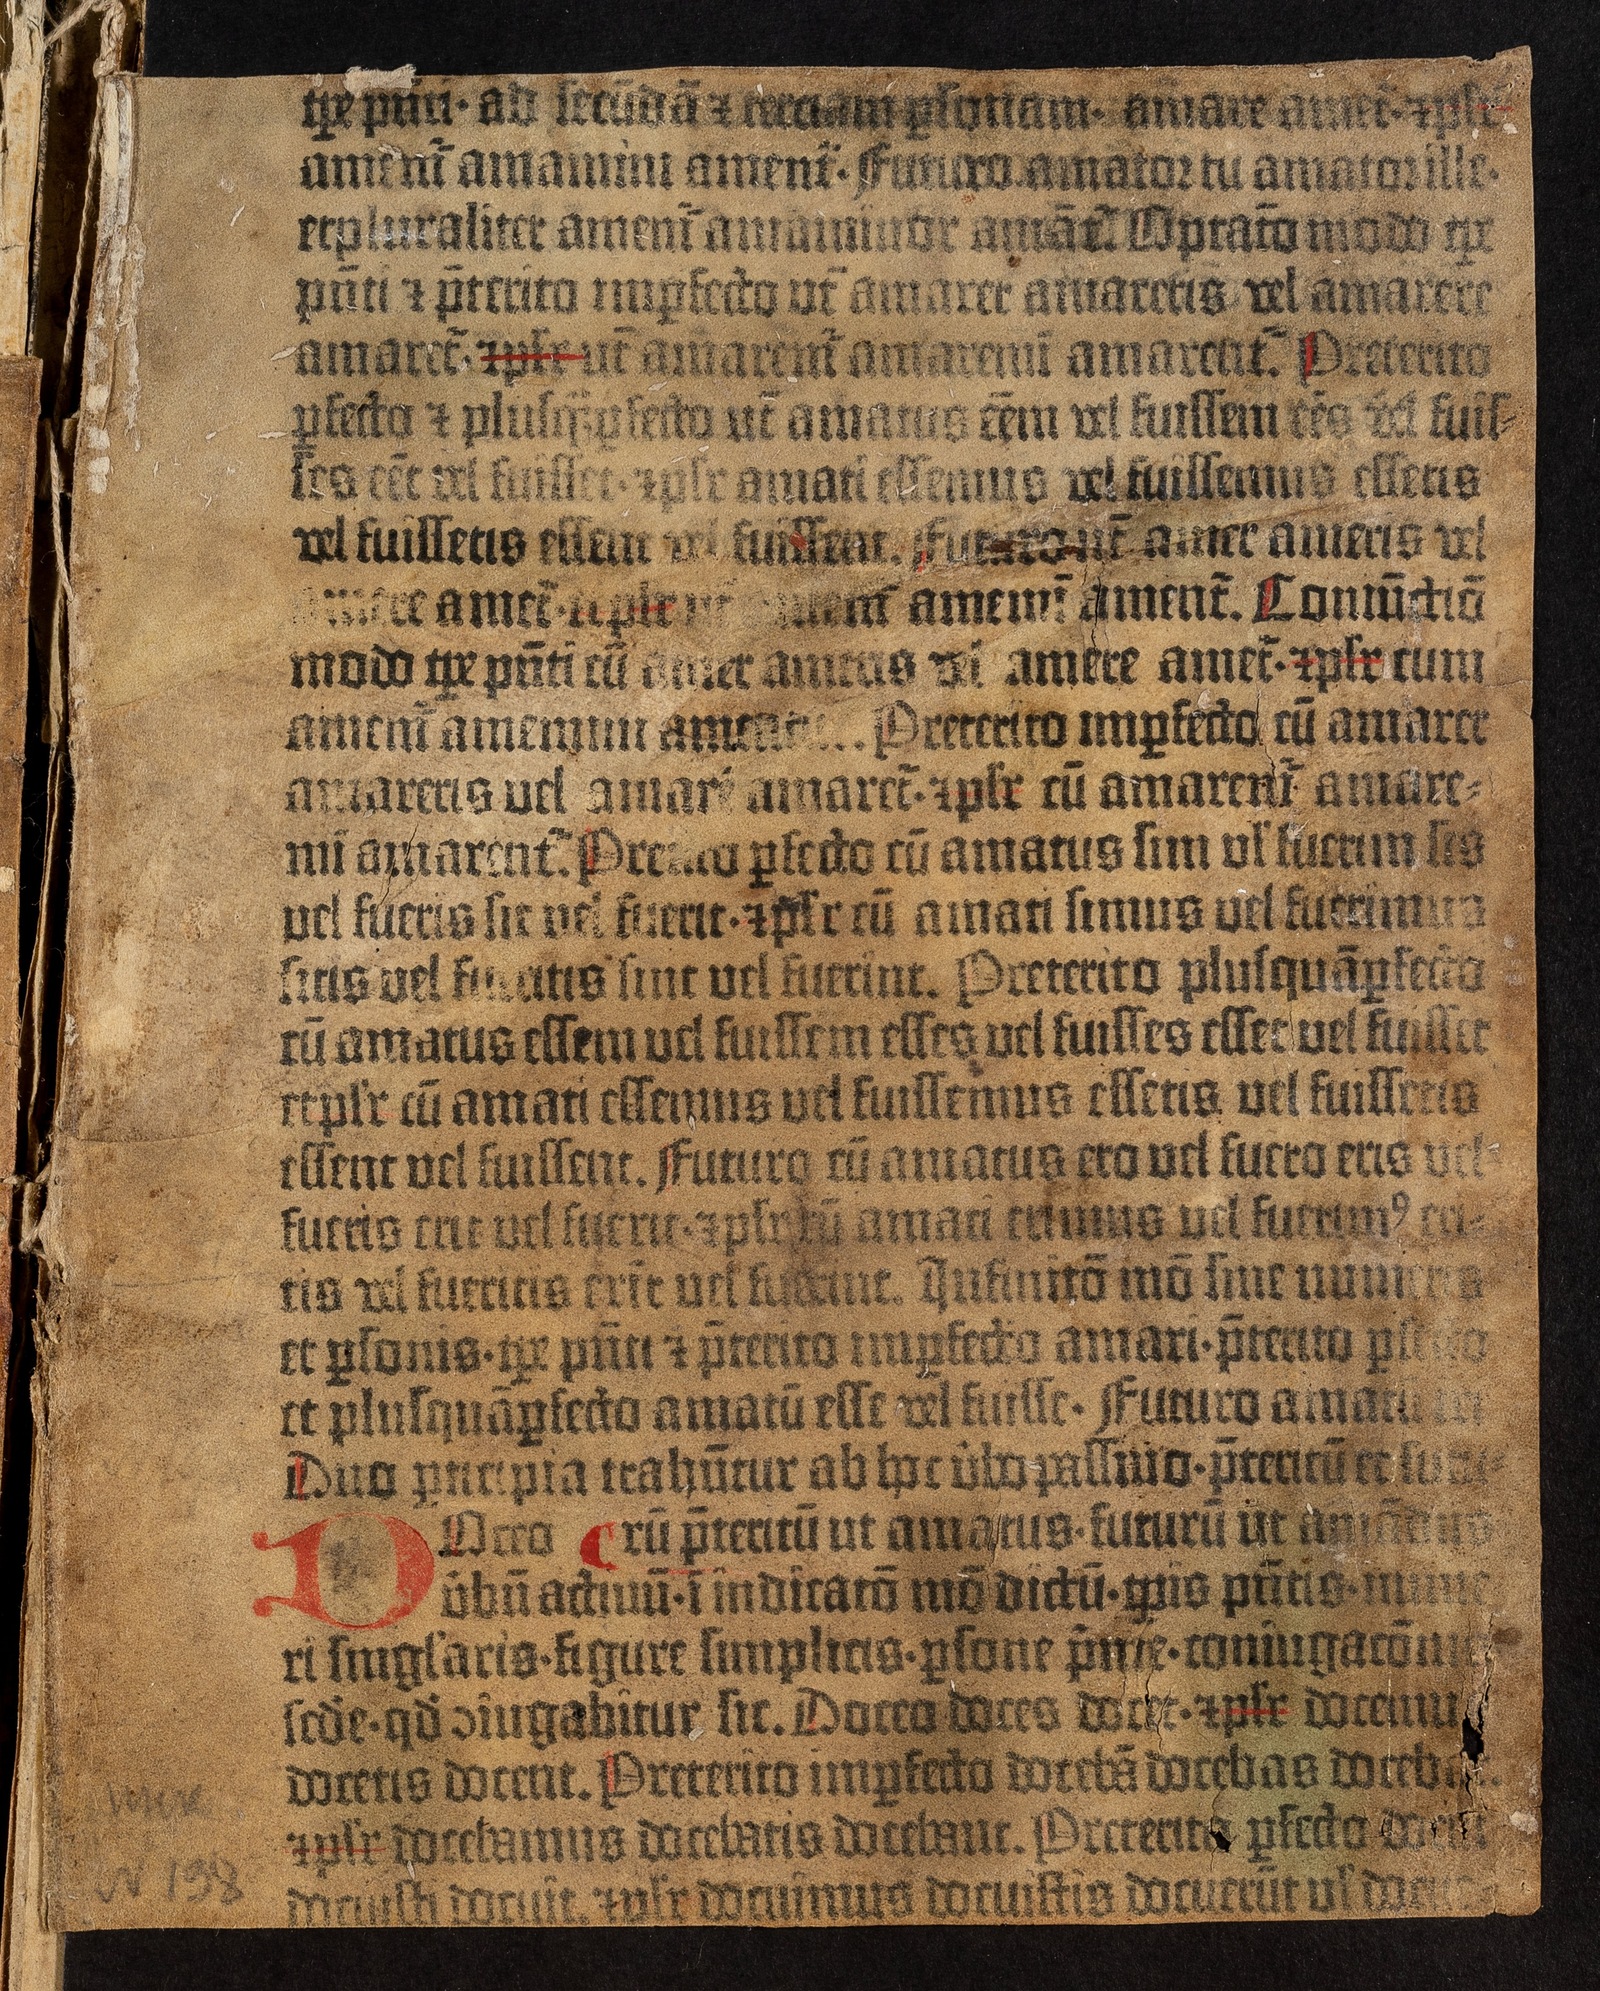 tꝑe pñti· ad secūdā ⁊ terciam ꝑsonam· amare amet᷑· ⁊ plr̄
amem᷑ amamini ament᷑· Futuro amator tu amator ille·
et pluraliter amem᷑ amaminor amāt᷑· Optatō modo tꝑe
pñti ⁊ p̄terito imꝑfecto ut̄ amarer amareris vel amarere
amaret᷑· ⁊ plr̄ ut̄ amarem᷑ amaremī amarent᷑. Preterito
ꝑfecto ⁊ plusq̃ꝑfecto ut̄ amatus eēm vel fuissem eēs vel fuis⸗
ses eēt vel fuisset· ⁊ plr̄ amati essemus vel fuissemus essetis
vel fuissetis essent vel fuissent. Futuro ut̄ amer ameris vel
amere amet᷑· ⁊ plr̄ ut̄ amem᷑ amemī ament᷑. Coniūctiō
modo tꝑe pñti cū amer ameris vel amere amet᷑· ⁊ plr̄ cum
amem᷑ amemini ament᷑. Preterito imꝑfecto cū amarer
amareris vel amar̄e amaret᷑· ⁊ plr̄ cū amarem᷑ amare⸗
mī amarent᷑. Preterito ꝑfecto cū amatus sim vl̓ fuerim sis
vel fueris sit vel fuerit· ⁊ plr̄ cū amati simus vel fuerimus
sitis vel fueritis sint vel fuerint. Preterito plusquāꝑfecto
cū amatus essem vel fuissem esses vel fuisses esset vel fuisset
et plr̄ cū amati essemus vel fuissemus essetis vel fuissetis
essent vel fuissent. Futuro cū amatus ero vel fuero eris vel
fueris erit vel fuerit· ⁊ plr̄ cū amati erimus vel fuerimꝰ eri⸗
tis vel fueritis erīt vel fuerint. Infinitō mō sine numeris
et ꝑsonis· tꝑe pñti ⁊ p̄terito imꝑfecto amari· p̄terito ꝑfecto
et plusquāꝑfecto amatū esse vel fuisse· Futuro amatū iri
Duo ꝑticipia trahūtur ab hoc v̄bo passiuo· p̄teritū et futu⸗
DOceo rū p̄teritū ut amatus· futurū ut amādus
v̄bū actiuū· ī indicatō mō dictū· tꝑis pñtis· nume
ri singl̓aris· figure simplicis· ꝑsone p̄me· coniugatōnis
scd̄e· qd̄ ↄiugabitur sic. Doceo doces docet· ⁊ plr̄ docemus
docetis docent. Preterito imꝑfecto docebā docebas docebat.
⁊ plr̄ docebamus docebatis docebant. Preterito ꝑfecto docui
docuisti docuit. ⁊ plr̄ docuimus docuistis docuerūt vl̓ docue⸗
W 198